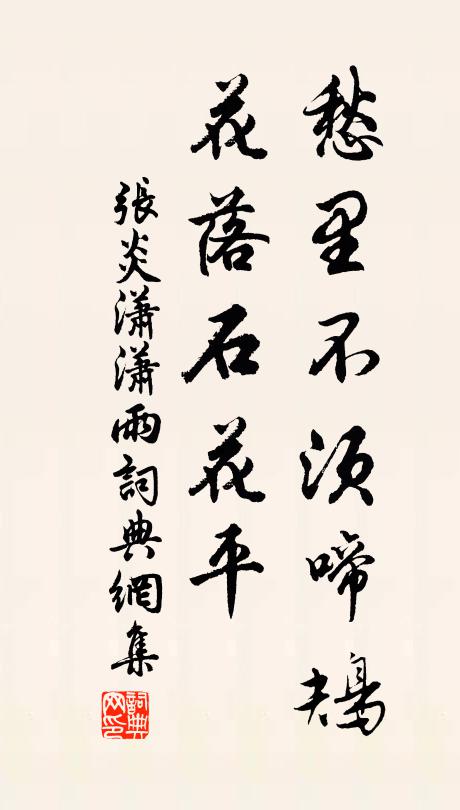 愁里不須啼鴂
花落石花平
張炎瀟瀟雨詞典網集
詞典
网印